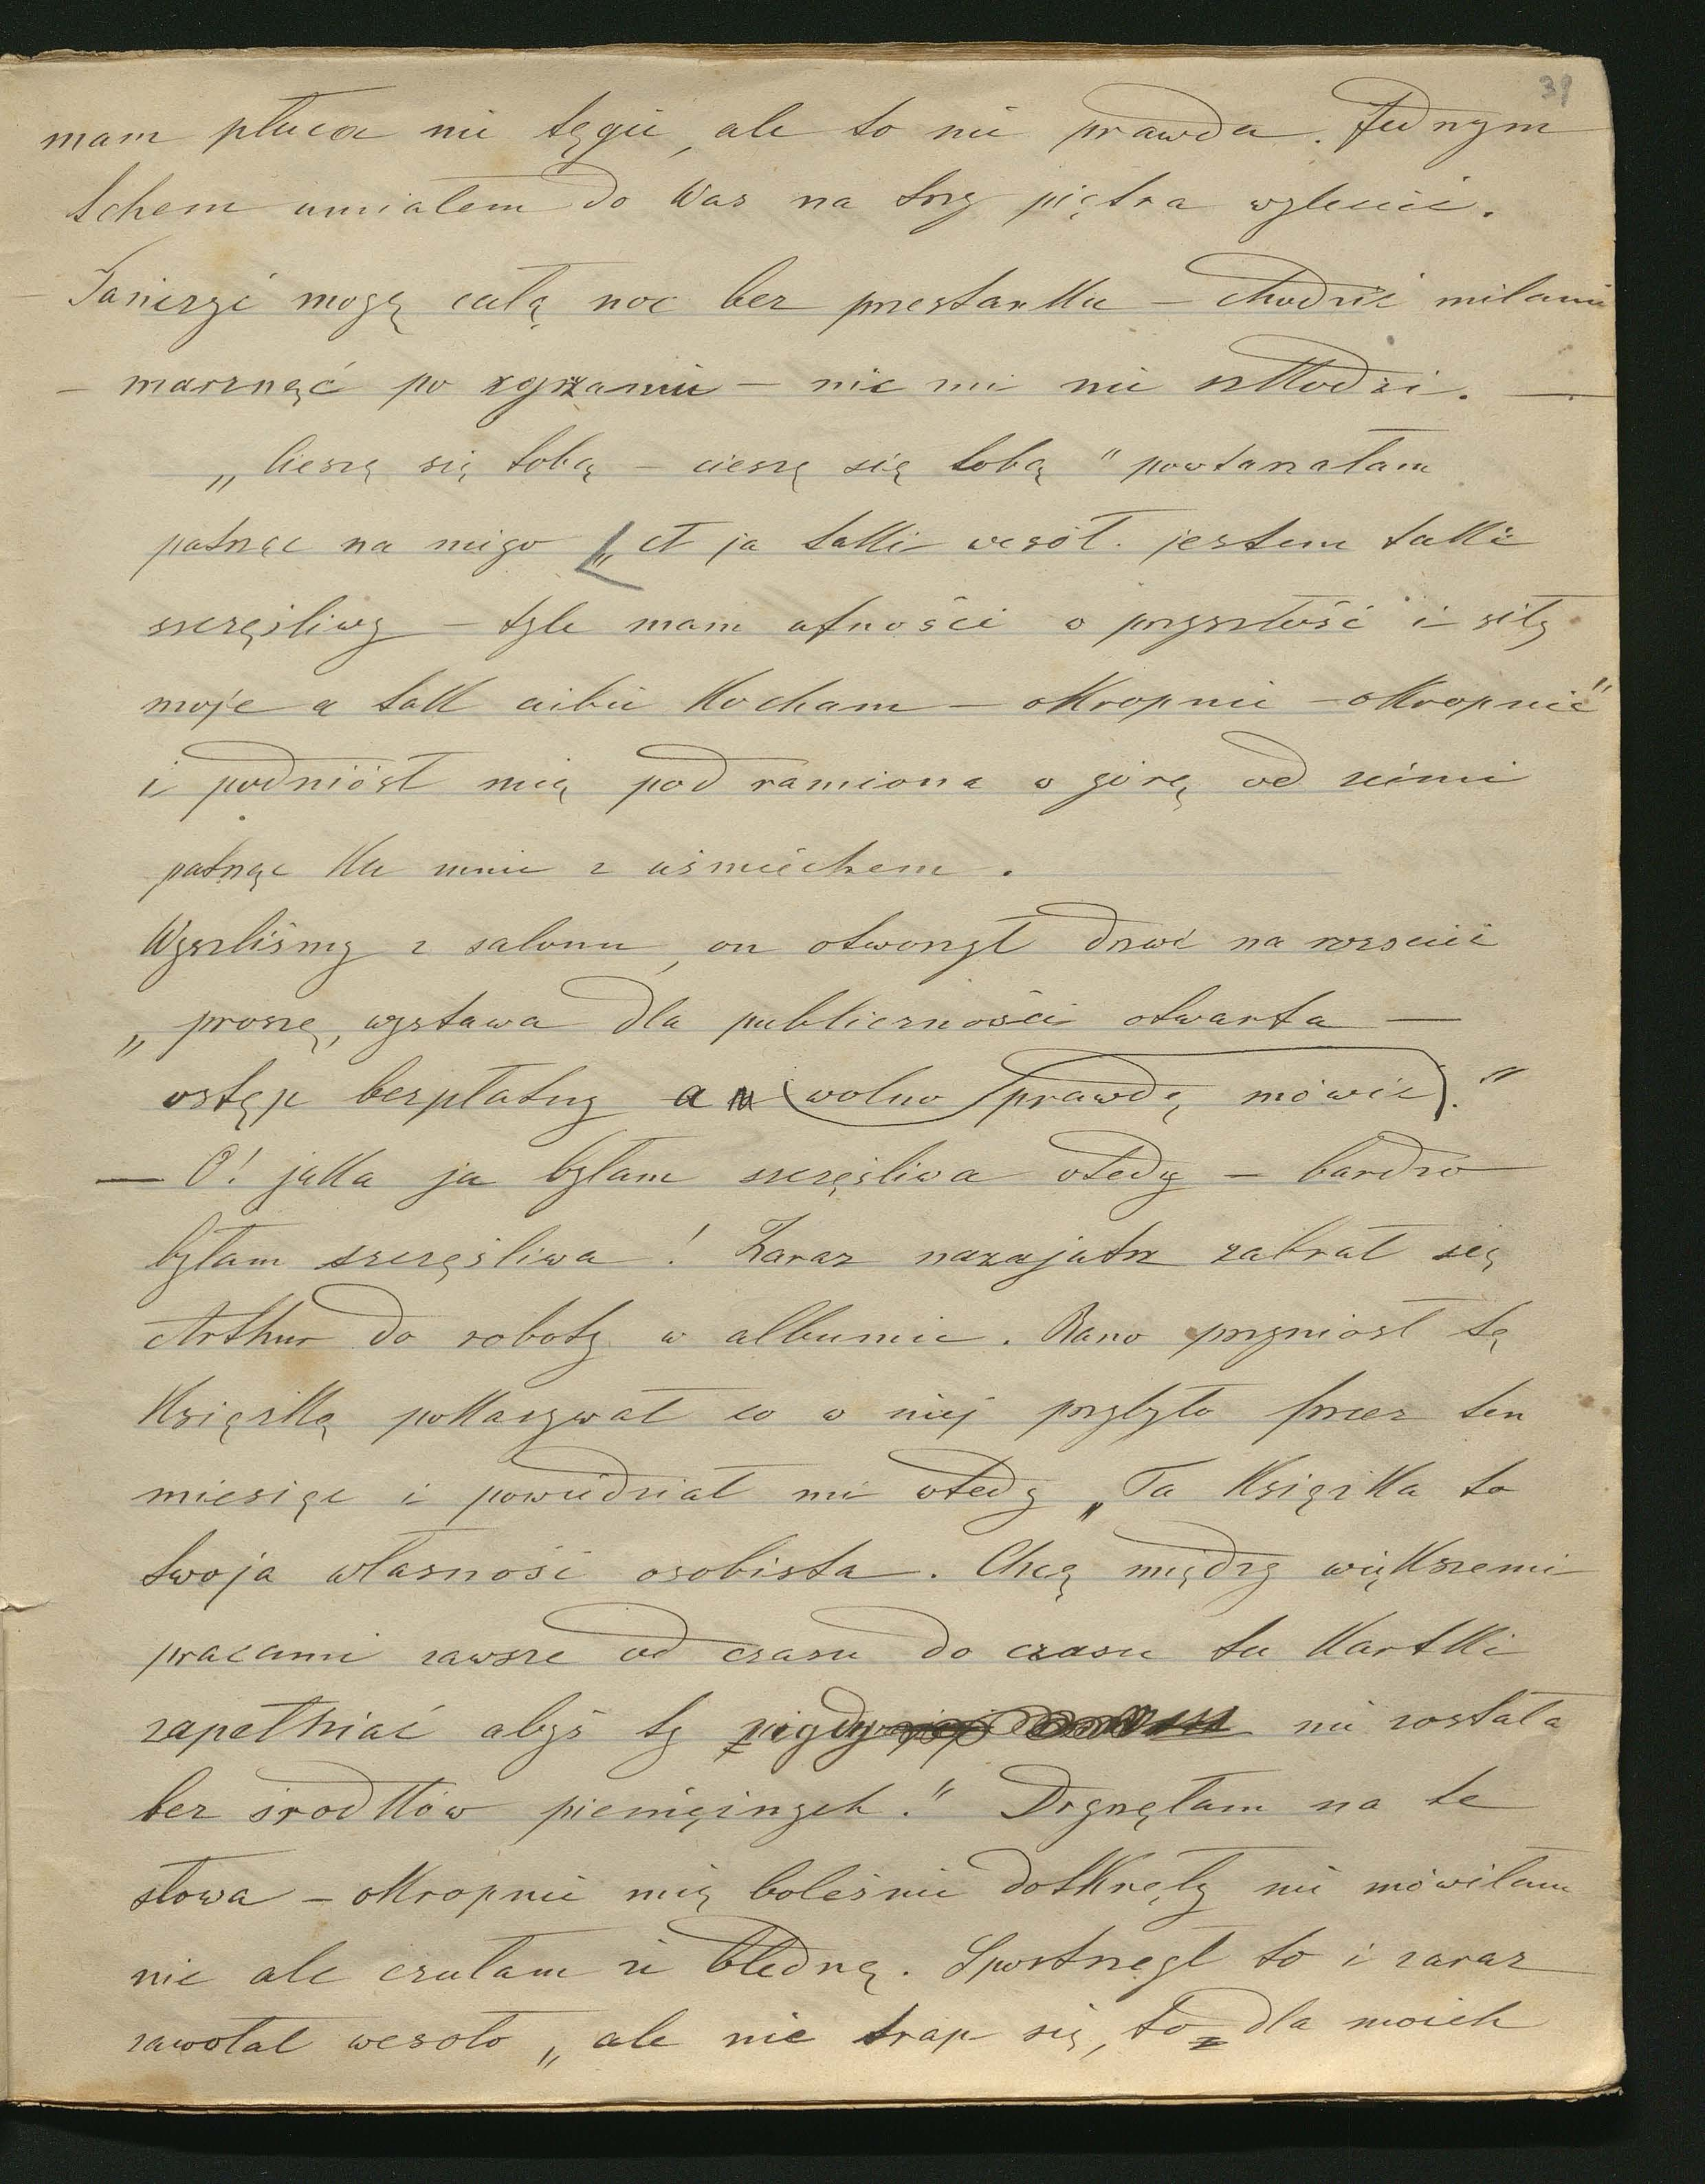 39
mam płuca nie tęgie, ale to nie prawda. Jednym
tchem umiałem do Was na trzy piętra wzlecić.
Tańczyć mogę całą noc bez przestanku – chodzić milami
– marznąć po zgrzaniu – nic mi nie szkodzi. —
„Cieszę się tobą – cieszę się tobą" powtarzałam
patrząc na niego „A ja taki wesół. jestem taki
szczęśliwy – tyle mam ufności w przyszłość i siły
moje a tak ciebie kocham – okropnie – okropnie"
i podniósł mię pod ramiona w górę od ziemi
patrząc ku mnie z uśmiechem.
Wyszliśmy z salonu, on otworzył drzwi na rozcież
„proszę, wystawa dla publiczności otwarta —
wstęp bezpłatny a wolno prawdę mówić."
— O! jaka ja byłam szczęśliwa wtedy – bardzo
byłam szczęśliwa! Zaraz nazajutrz zabrał się
Arthur do roboty w albumie. Rano przyniósł tę
Książkę pokazywał co w niej przybyło przez ten
miesiąc i powiedział mi wtedy „Ta Książka to
twoja własność osobista. Chcę między większemi
pracami zawsze od czasu do czasu tu kartki
zapełniać abyś ty nigdy nie została
bez środków pieniężnych." Drgnęłam na te
słowa – okropnie mię boleśnie dotknęły nie mówiłam
nic ale czułam że bledną. Spostrzegł to i zaraz
zawołał wesoło „ale nie trap się, to dla moich